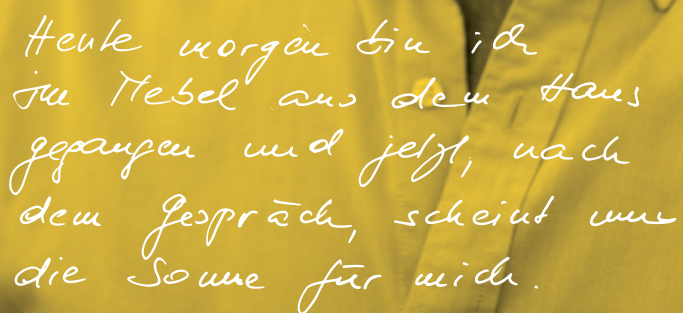 Heute morgen bin ich
im Nebel aus dem Haus
gegangen und jetzt, nach
dem Gespräch, scheint
die Sonne für mich.